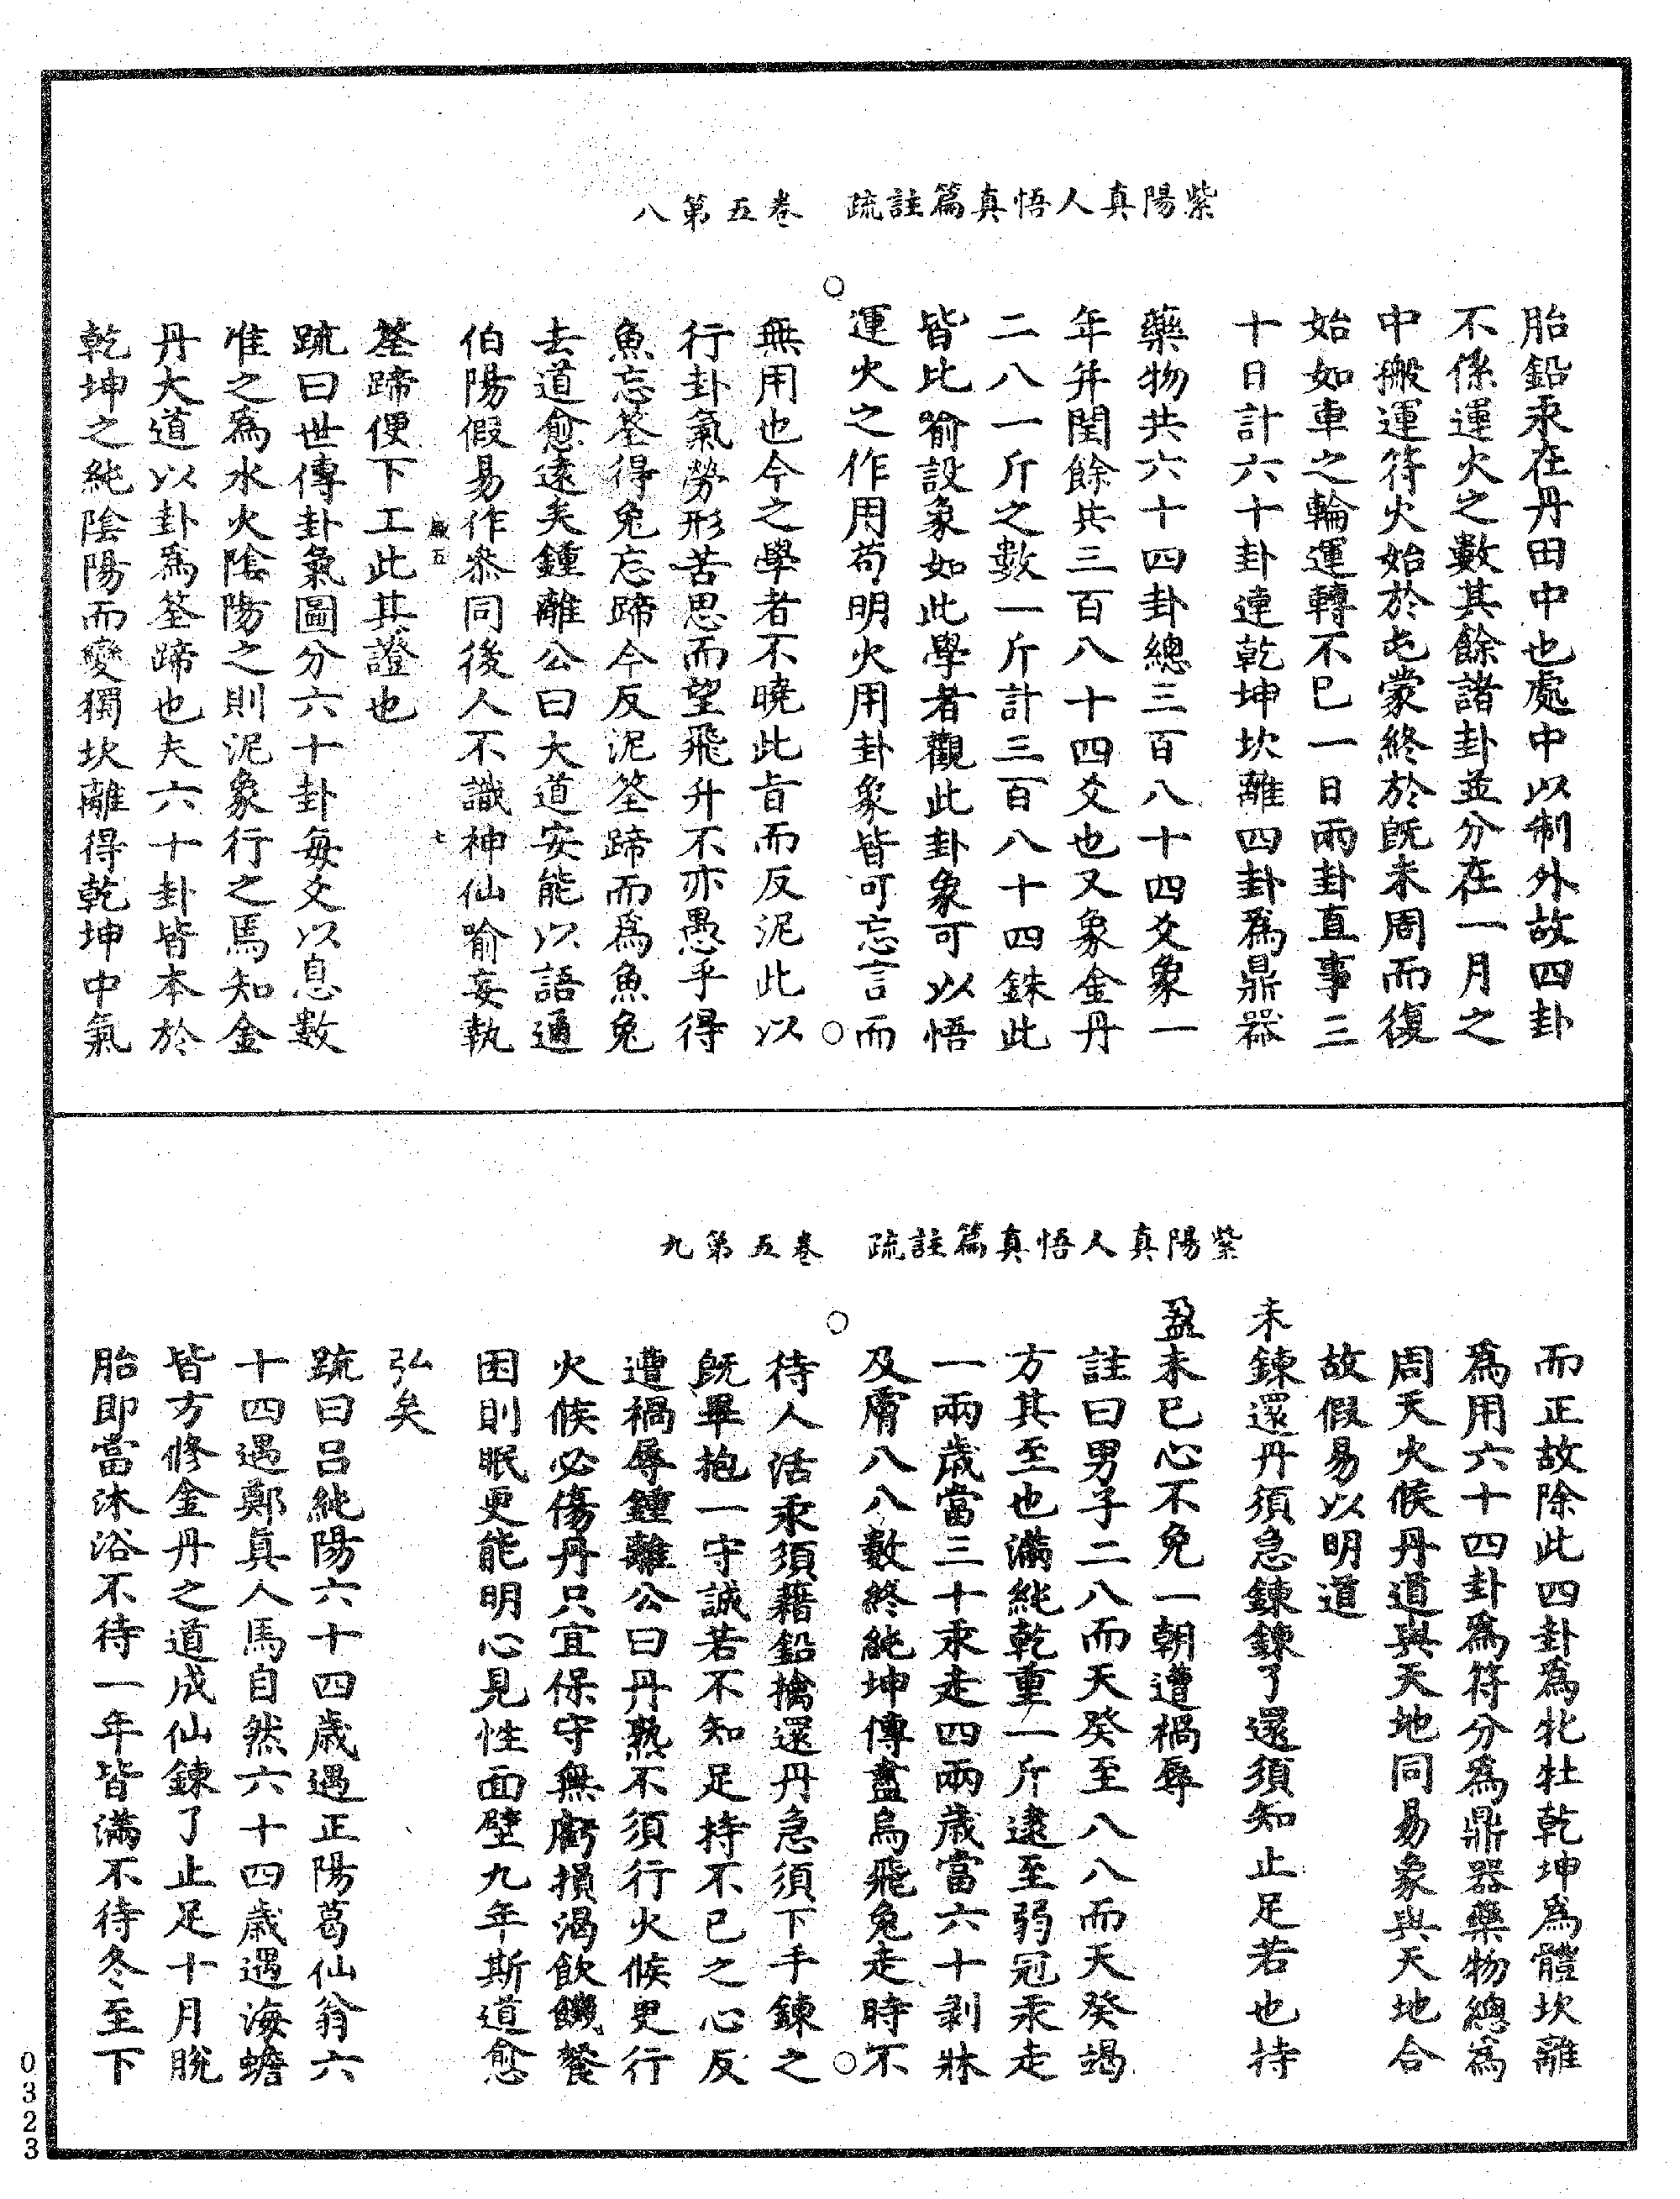 紫陽真人悟真篇註疏　卷五第八
胎鉛汞在丹田中也處中以制外故四卦
不係運火之數其餘諸卦並分在一月之
中搬運符火始於屯蒙終於既未周而復
始如車之輪運轉不已一日兩卦直事三
十日計六十卦連乾坤坎離四卦爲鼎器
藥物共六十四卦總三百八十四爻象一
年并閏餘共三百八十四爻也又象金丹
二八一斤之數一斤計三百八十四銖此
皆比喻設象如此學者觀此卦象可以悟
運火之作用苟明火用卦象皆可忘言而
無用也今之學者不曉此旨而反泥此以
行卦氣勞形苦思而望飛升不亦愚乎得
魚忘筌得兔忘蹄今反泥筌蹄而爲魚兔
去道愈遠矣鍾離公曰大道安能以語通
伯陽假易作叅同後人不識神仙喻妄執
歲五　七
筌蹄便下工此其證也
疏曰世傳卦氣圖分六十卦每爻以息數
准之爲水火陰陽之則泥象行之焉知金
丹大道以卦爲筌蹄也夫六十卦皆本於
乾坤之純陰陽而變獨坎離得乾坤中氣
紫陽真人悟真篇註疏　卷五第九
而正故除此四卦爲牝牡乾坤爲體坎離
爲用六十四卦爲符分爲鼎器藥物總爲
周天火候丹道與天地同易象與天地合
故假易以明道
未鍊還丹須急鍊鍊了還須知止足若也持
盈未已心不免一朝遭禍辱
註曰男子二八而天癸至八八而天癸竭
方其至也滿純乾重一斤逮至弱冠汞走
一兩歲當三十汞走四兩歲當六十剥牀
及膚八八數終純坤傳盡烏飛兔走時不
待人活汞須藉鉛擒還丹急須下手鍊之
既畢抱一守誠若不知足持不已之心反
遭禍辱鍾離公曰丹熟不須行火候更行
火候必傷丹只宜保守無虧損渴飲饑餐
困則眠更能明心見性面壁九年斯道愈
弘矣
疏曰吕純陽六十四歲遇正陽葛仙翁六
十四遇鄭真人馬自然六十四歲遇海蟾
皆方修金丹之道成仙鍊了止足十月脫
胎即當沐浴不待一年皆滿不待冬至下
0323